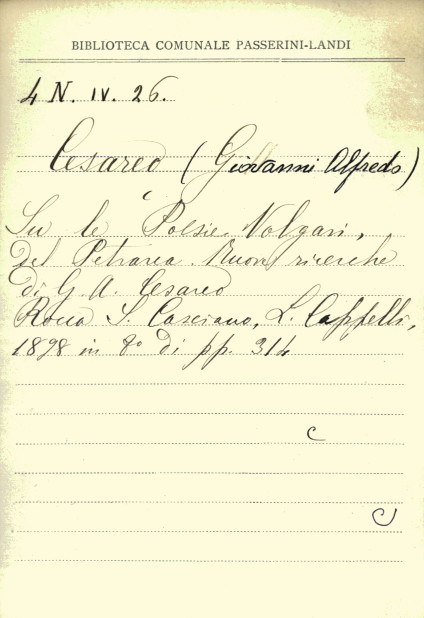 BIBLIOTECA COMUNALE PASSERINI-LANDI
4 N. IV. 26.
Cesareo (Giovanni Alfredo)
Su le "Poesie Volgari,
del Petrarca Nuove ricerche
di G. A. Cesareo
Rocca S. Casciano, L. Cappelli,
1898 in 8° di pp. 314
c
C